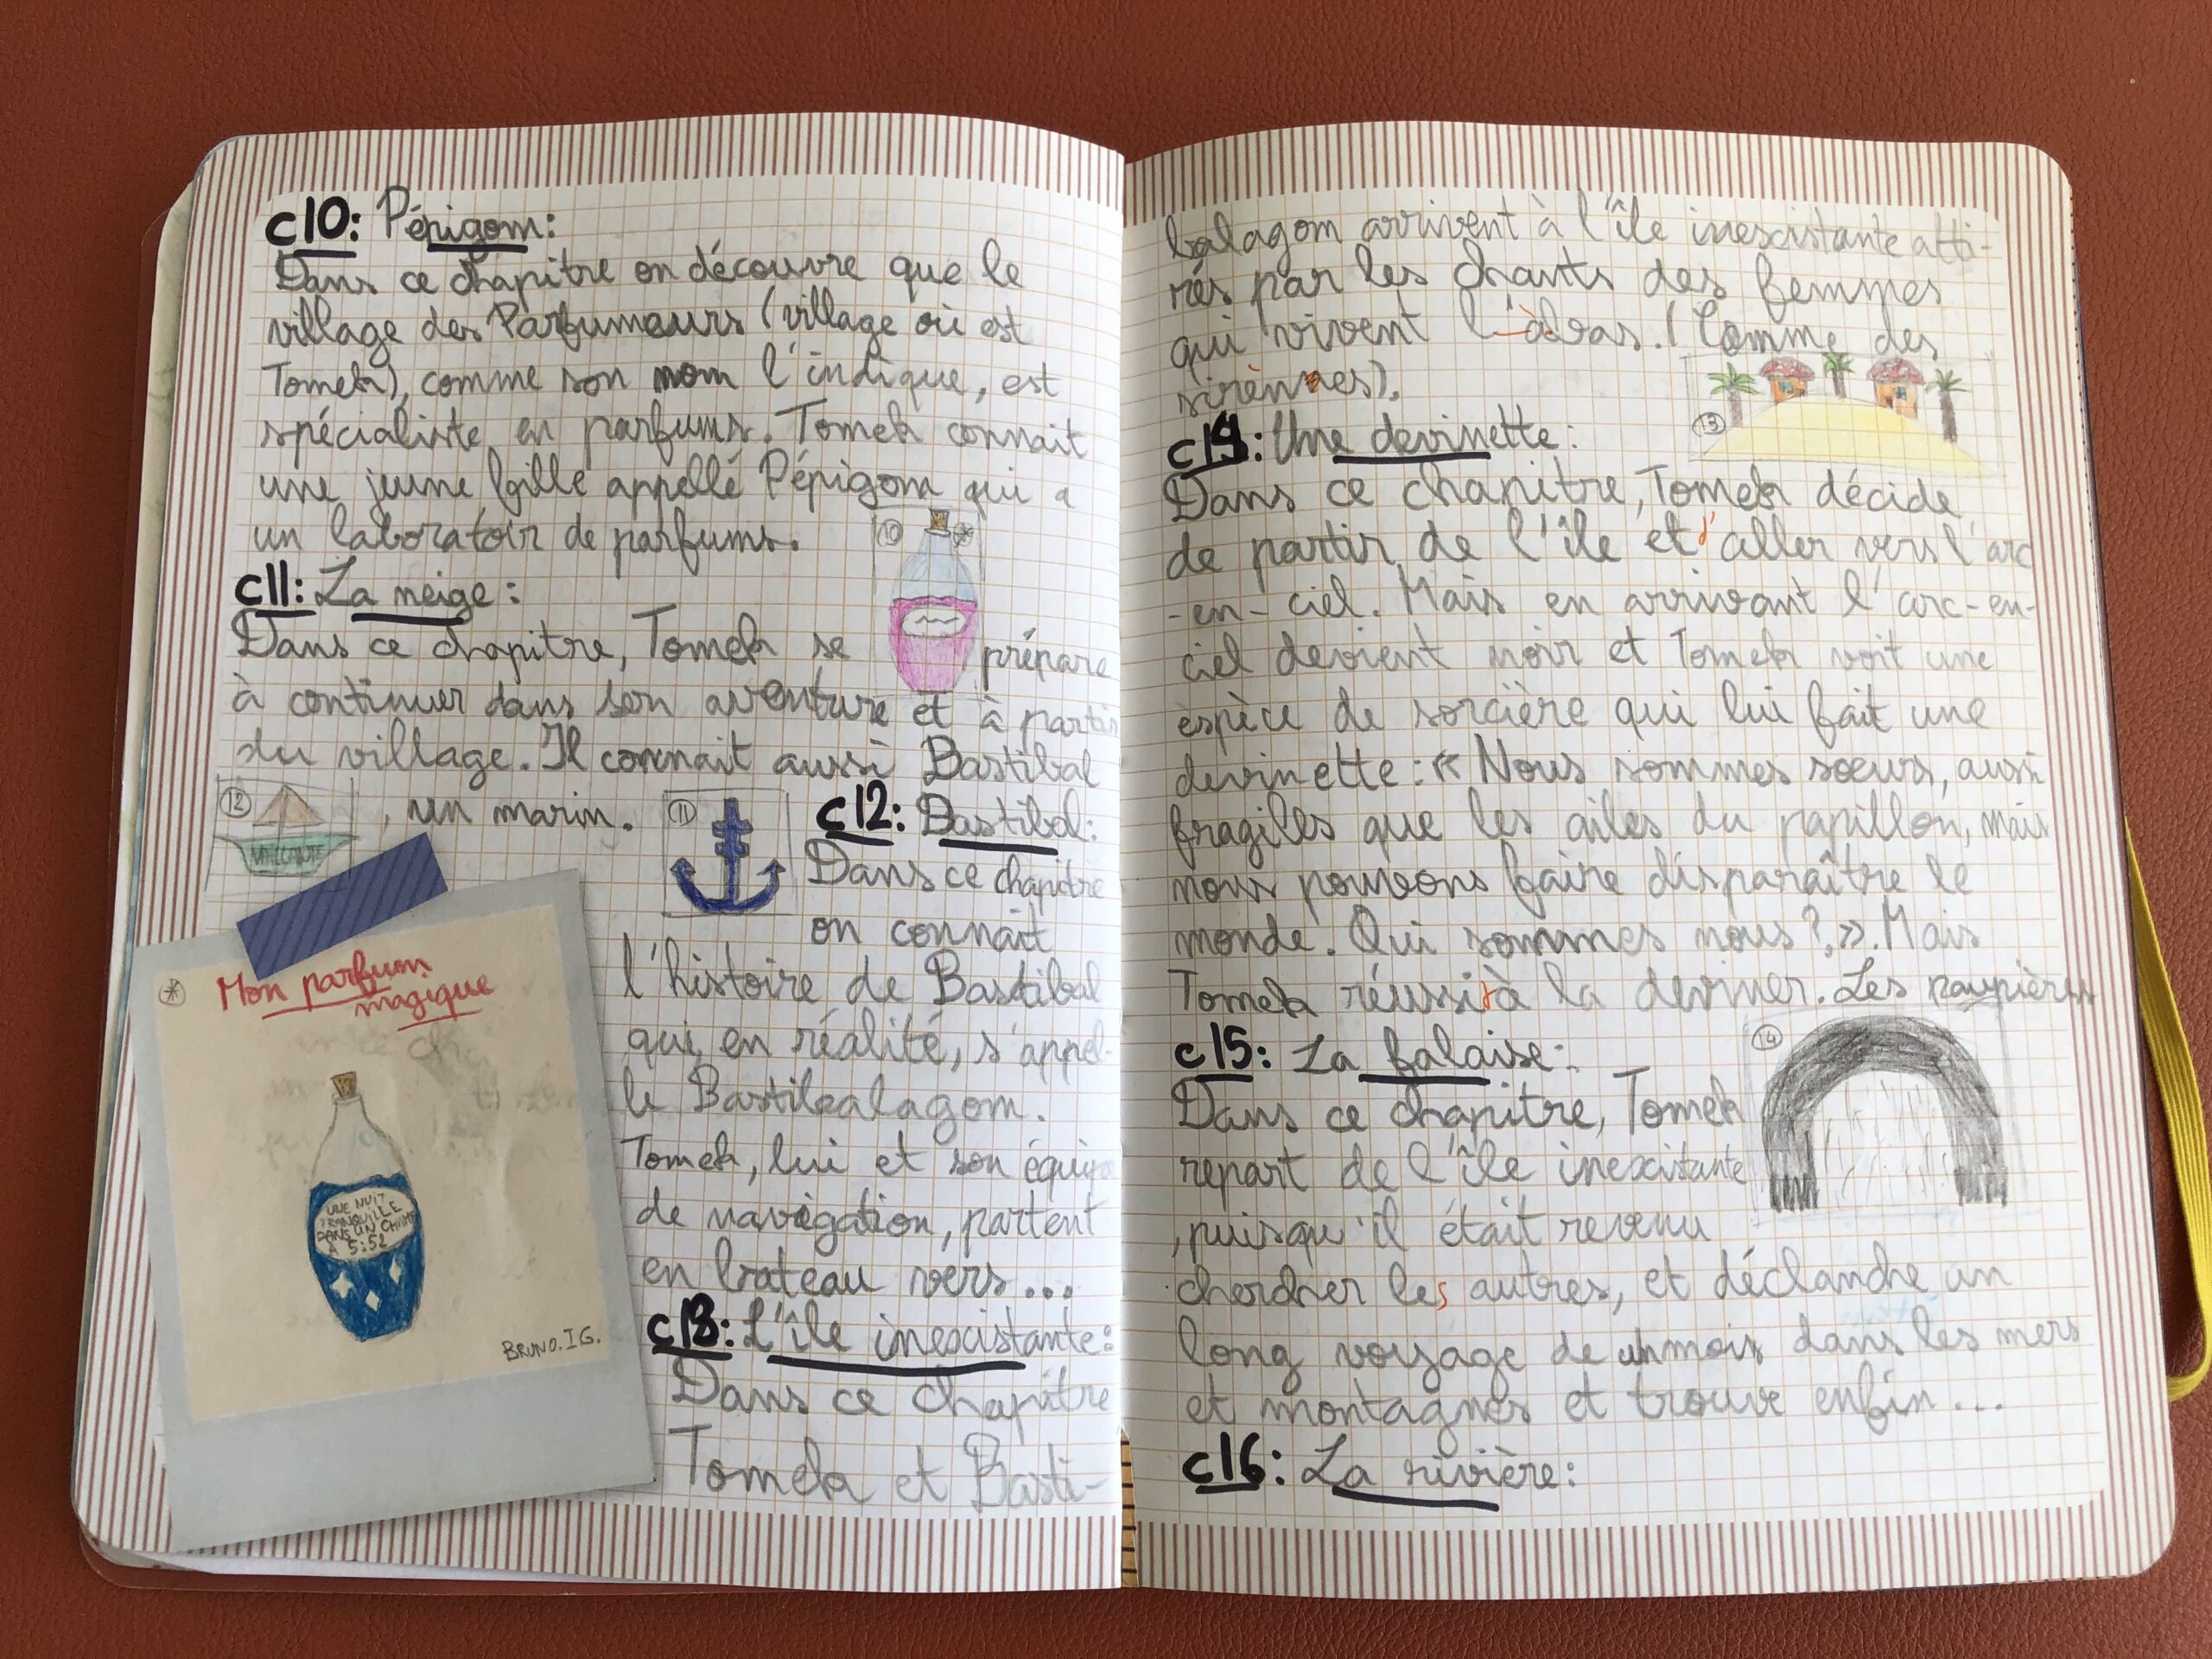 c10: Pépigom:
Dans ce chapitre on découvre que le
village des Parfumeurs (village où est
Tomek), comme son nom l'indique, est
spécialiste en parfums. Tomek connait
une jeune fille appellé Pépigom qui a
un laboratoir de parfums.
10 *
c11: La neige:
Dans ce chapitre, Tomek se prépare
à continuer dans son aventure et à partir
du village. Il connait aussi Bastibal
, un marin.
12
VAILLANTE
11
c12: Bastibal:
Dans ce chapitre
on connaît
l'histoire de Bastibal
qui, en réalité, s'appel-
le Bastibalagom.
Tomek, lui et son équipe
de navigation, partent
en bateau vers...
c13: L'île inexistante:
Dans ce chapitre
Tomek et Basti-
*
Mon parfum
magique
UNE NUIT
TRANQUILLE
DANS UN CHAMP
À 5:52
BRUNO.I G.
balagom arrivent à l'île inexistante atti-
rés par les chants des femmes
qui vivent l-àbas. (Comme des
sirènes).
13
c14: Une devinette:
Dans ce chapitre, Tomek décide
de partir de l'île et d'aller vers l'arc
-en-ciel. Mais en arrivant l'arc-en-
ciel devient noir et Tomek voit une
espèce de sorcière qui lui fait une
devinette: « Nous sommes sœurs, aussi
fragiles que les ailes du papillon, mais
nous pouvons faire disparaître le
monde. Qui sommes nous?,». Mais
Tomek réussit à la deviner. Les paupières
c15: La falaise:
14
Dans ce chapitre, Tomek
repart de l'île inexistante
, puisqu'il était revenu
chercher les autres, et déclanche un
long voyage de un mois dans les mers
et montagnes et trouve enfin...
c16: La rivière: